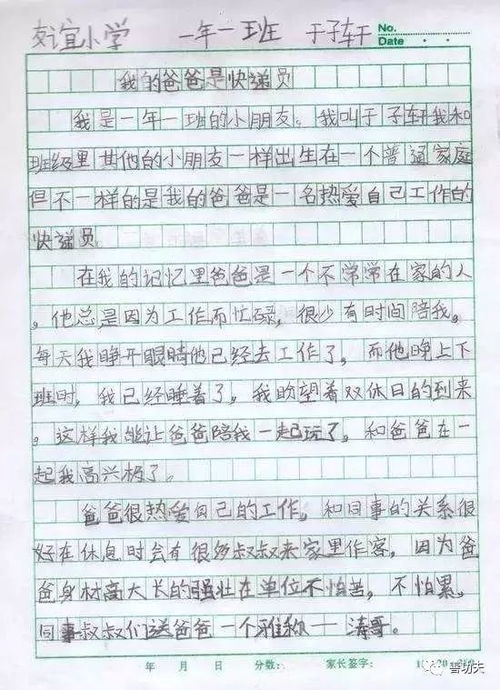 友谊小学 一年一班 于子轩 No.
Date . .
我的爸爸是快递员
我是一年一班的小朋友。我叫于子轩我和
班级里其他的小朋友一样出生在一个普通家庭
但不一样的是我的爸爸是一名热爱自己工作的
快递员
在我的记忆里爸爸是一个不常常在家的人
。他总是因为工作而忙碌,很少有时间陪我。
每天我睁开眼睛他已经去工作了,而他晚上下
班时,我已经睡着了,我盼望着双休日的到来
。这样我能让爸爸陪我一起玩了,和爸爸在一
起我高兴极了。
爸爸很热爱自己的工作,和同事的关系很
好在休息时会有很多叔叔来家里作客,因为爸
爸身材高大长的强壮在单位不怕苦,不怕累,
同事叔叔们送爸爸一个雅称一涛哥。
年 月 日 分数: 家长签字:
善功夫